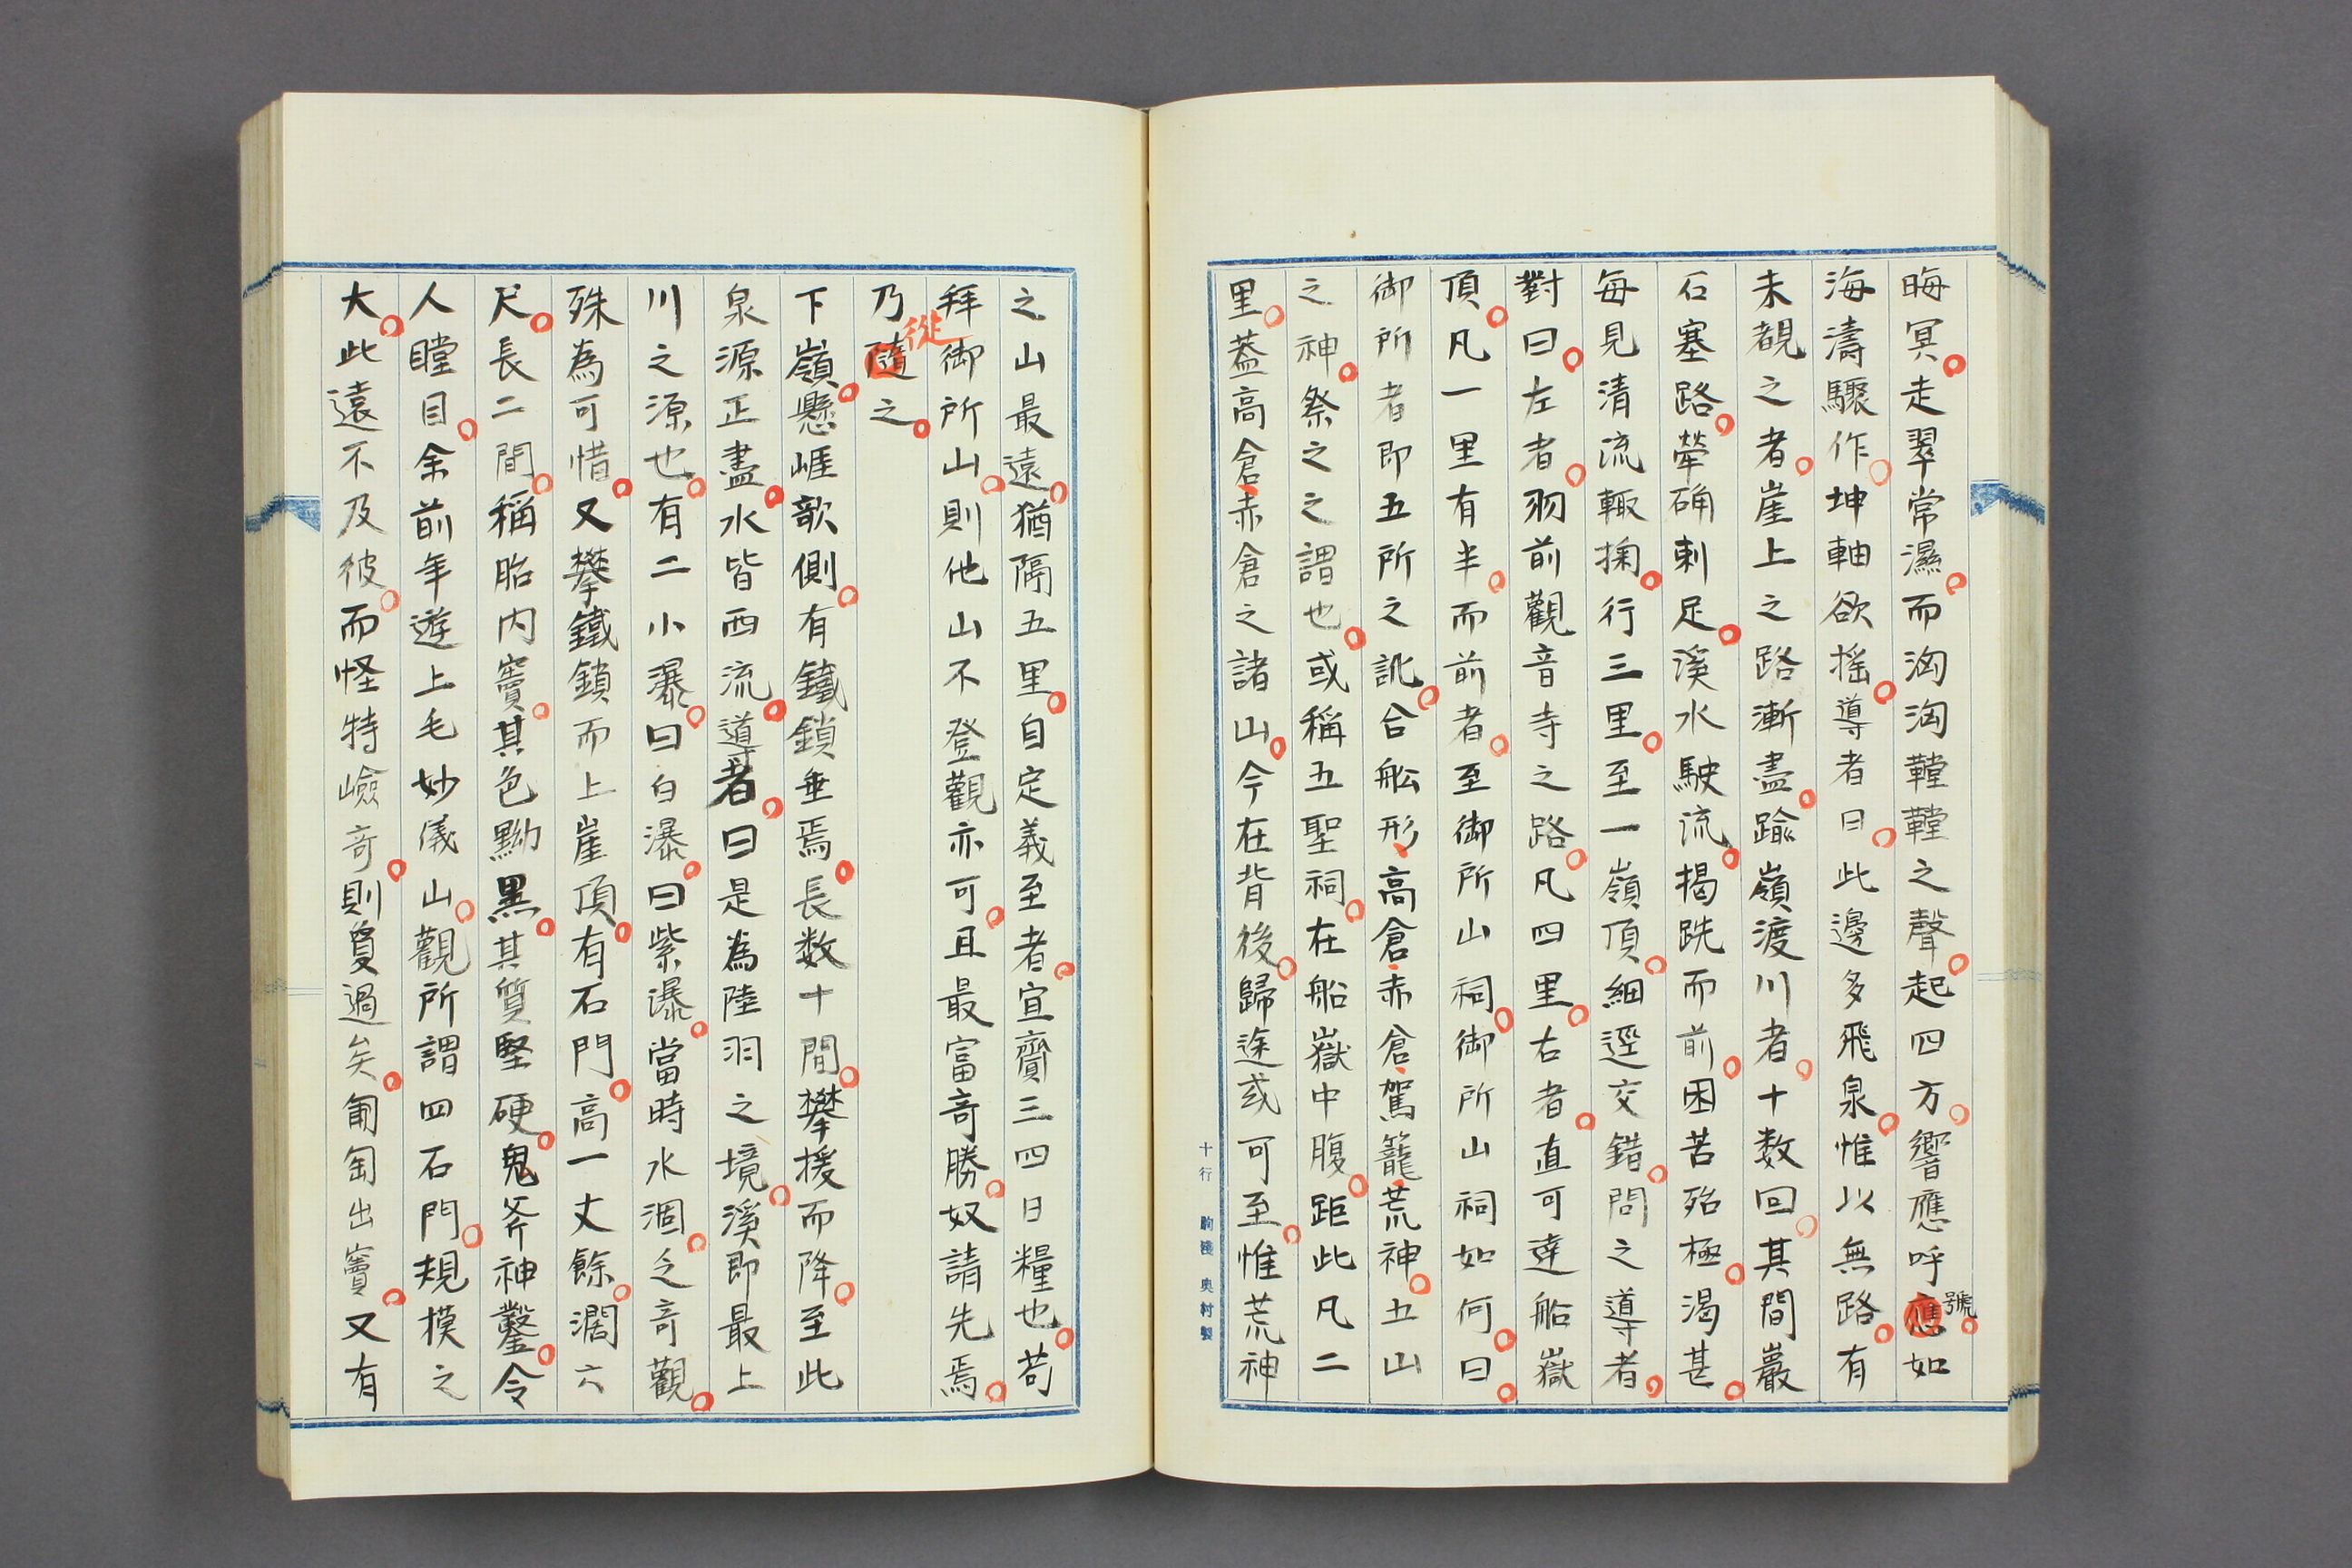 晦冥走翠常濕而洶洶鞺鞺之聲起四方響應呼應如
號
海濤驟作坤軸欲搖導者曰此邊多飛泉惟以無路有
未覩之者崖上之路漸盡踰嶺渡川者十数回其間巖
石塞路犖确刺足溪水駛流揭跣而前困苦殆極渴甚
每見清流輙掬行三里至一嶺頂細逕交錯問之導者
對曰左者羽前觀音寺之路凡四里右者直可達船嶽
頂凡一里有半而前者至御所山祠御所山祠如何曰
御所者即五所之訛合舩形高倉赤倉駕籠荒神五山
之神祭之之謂也或稱五聖祠在船嶽中腹距此凡二
里蓋高倉赤倉之諸山今在背後歸途或可至惟荒神
十行 奥村製
之山最遠猶隔五里自定義至者宜齎三四日糧也苟
拜御所山則他山不登觀亦可且最富奇勝奴請先焉
乃隨之
從
下嶺懸崕欹側有鐵鎖垂焉長数十間攀援而降至此
泉源正盡水皆西流導者曰是為陸羽之境溪即最上
川之源也有二小瀑曰白瀑曰紫瀑當時水涸乏奇觀
殊為可惜又攀鐵鎖而上崖頂有石門高一丈餘濶六
尺長二間稱胎内竇其色黝黒其質堅硬鬼斧神鑿令
人瞠目余前年遊上毛妙儀山觀所謂四石門規模之
大此遠不及彼而怪特嶮奇則夐過矣匍匐出竇又有